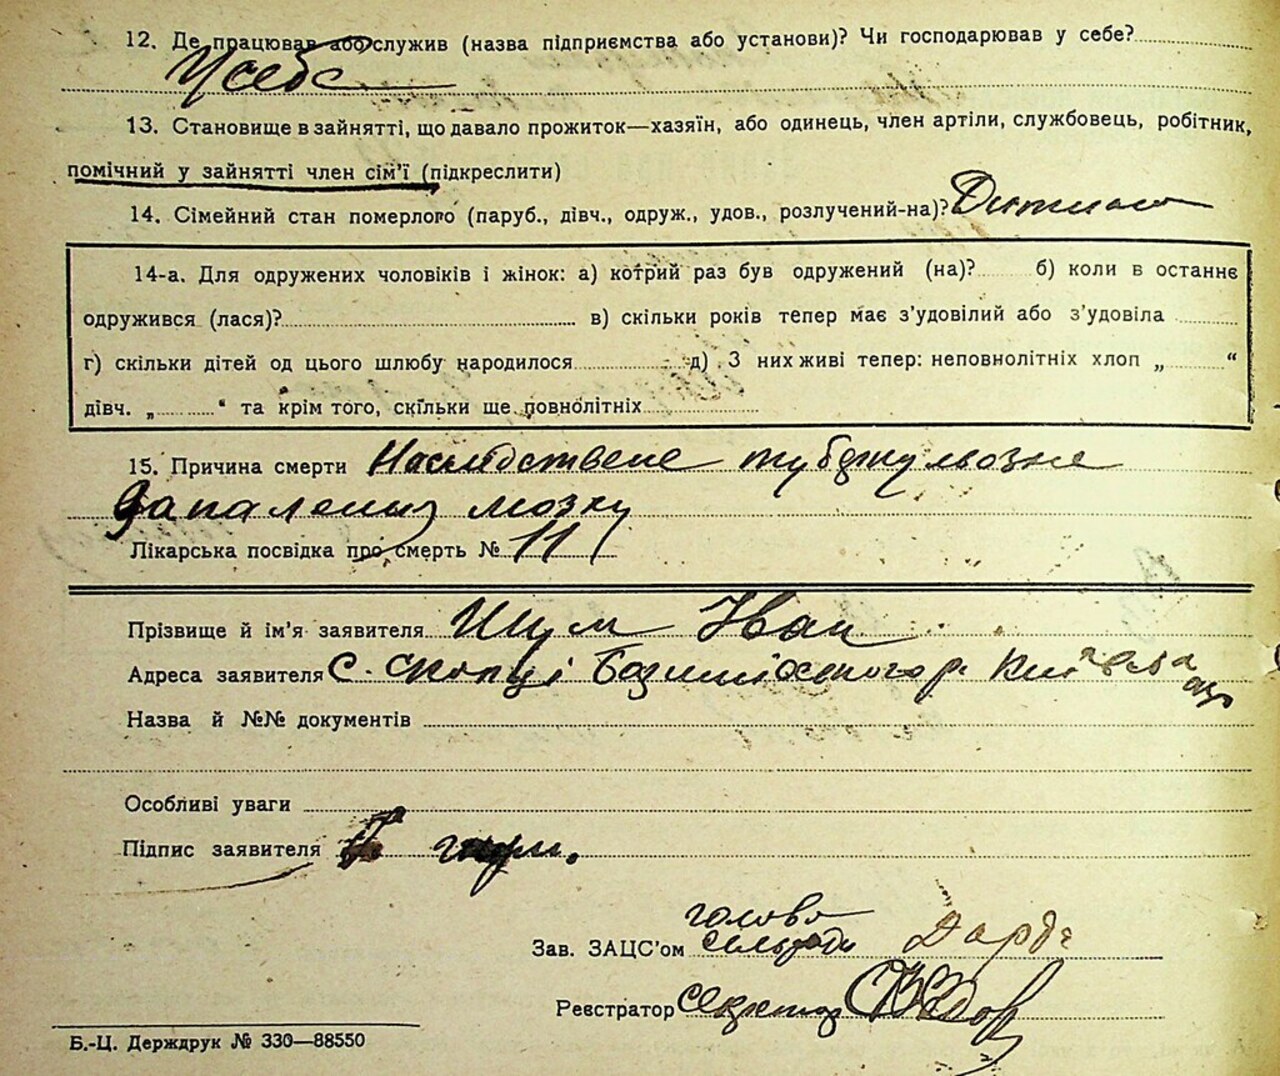 12. Де працював або служив (назва підприємства або установи)? Чи господарював у себе?
У себе
13. Становище в зайнятті, що давало прожиток—хазяїн, або одинець, член артіли, службовець, робітник,
помічний у зайнятті член сім'ї (підкреслити)
14. Сімейний стан померлого (паруб., дівч., одруж., удов., розлучений-на)? Дитина
14-а. Для одружених чоловіків і жінок: а) котрий раз був одружений (на)? б) коли в останнє
одружився (лася)? в) скільки років тепер має з'удовілий або з'удовіла
г) скільки дітей од цього шлюбу народилося д) З них живі тепер: неповнолітніх хлоп „ “
дівч. „ “ та крім того, скільки ще повнолітніх
15. Причина смерти Наслідствене туберкульозне
Запалення мозку
Лікарська посвідка про смерть № 11
Прізвище й ім'я заявителя Шум Іван
Адреса заявителя С. Скопці р. Київська
Назва й №№ документів
Особливі уваги
Підпис заявителя Шум.
голова
Зав. ЗАЦС'ом сільради
Реєстратор секретар
Б.-Ц. Держдрук № 330—88550